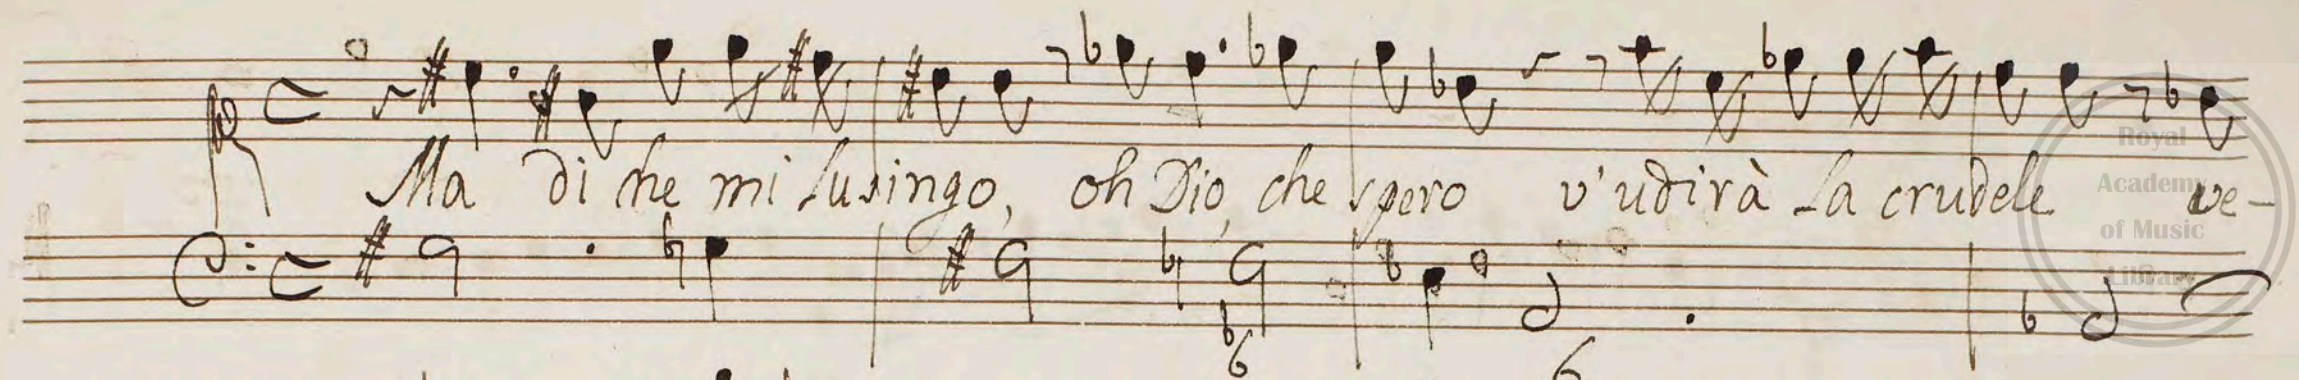 Ma di che mi lusingo, oh Dio, che spero v'udirà la crudele ve-
6
6
Royal
Academy
of Music
Library